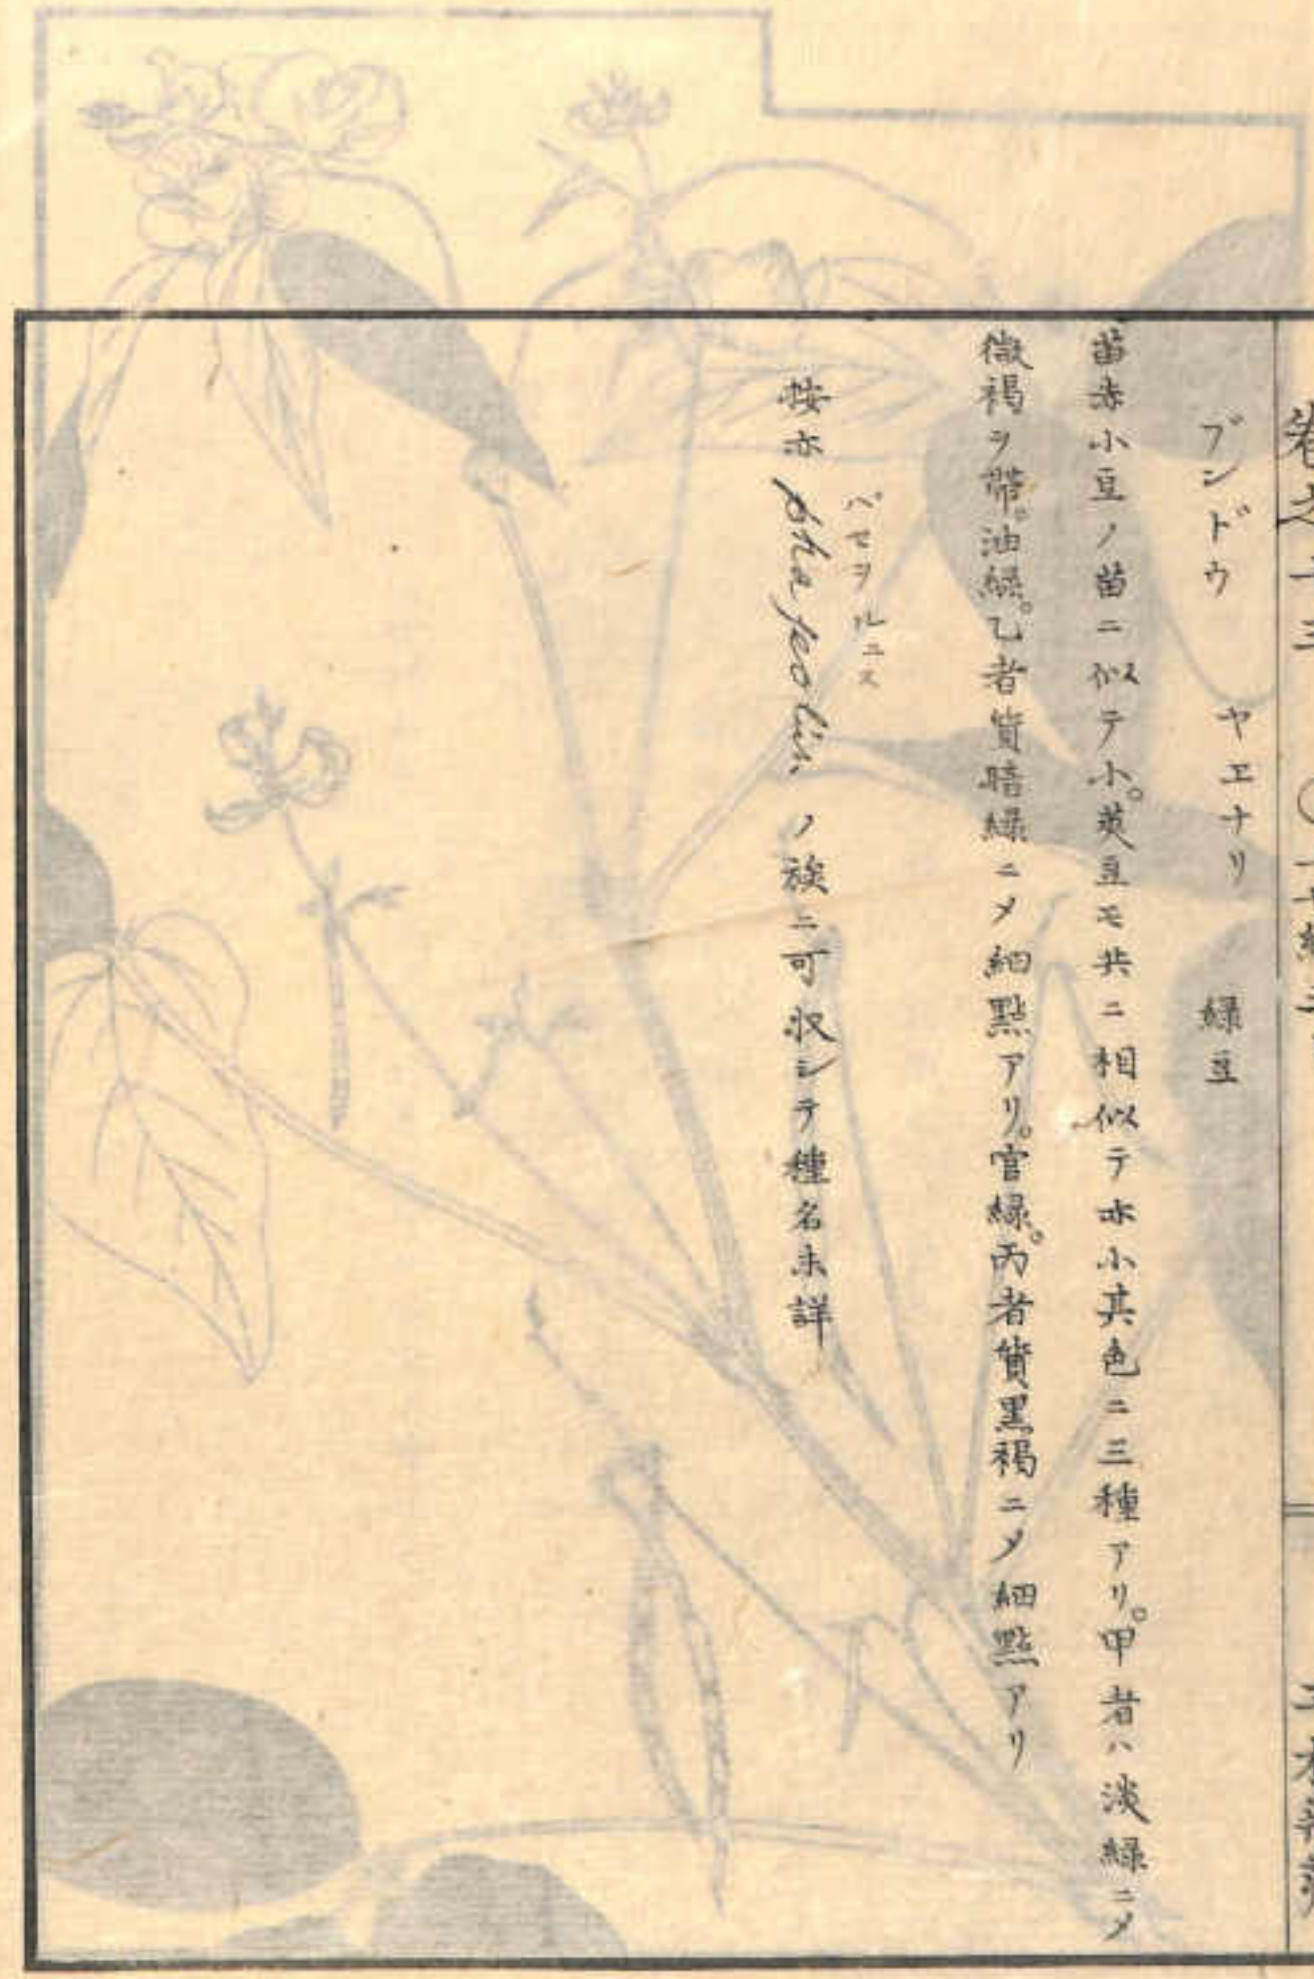 ブンドウ　ヤエナリ　緑豆
苗赤小豆ノ苗ニ似テ小。莢豆モ共ニ相似テ亦小其色ニ三種アリ。甲者ハ淡緑ニメ
微褐ヲ帯。油緑。乙者質暗緑ニメ細點アリ。官緑。丙者質黒褐ニメ細點アリ
パセヲルュス
按亦 phaseolus ノ族ニ可収シテ種名未詳